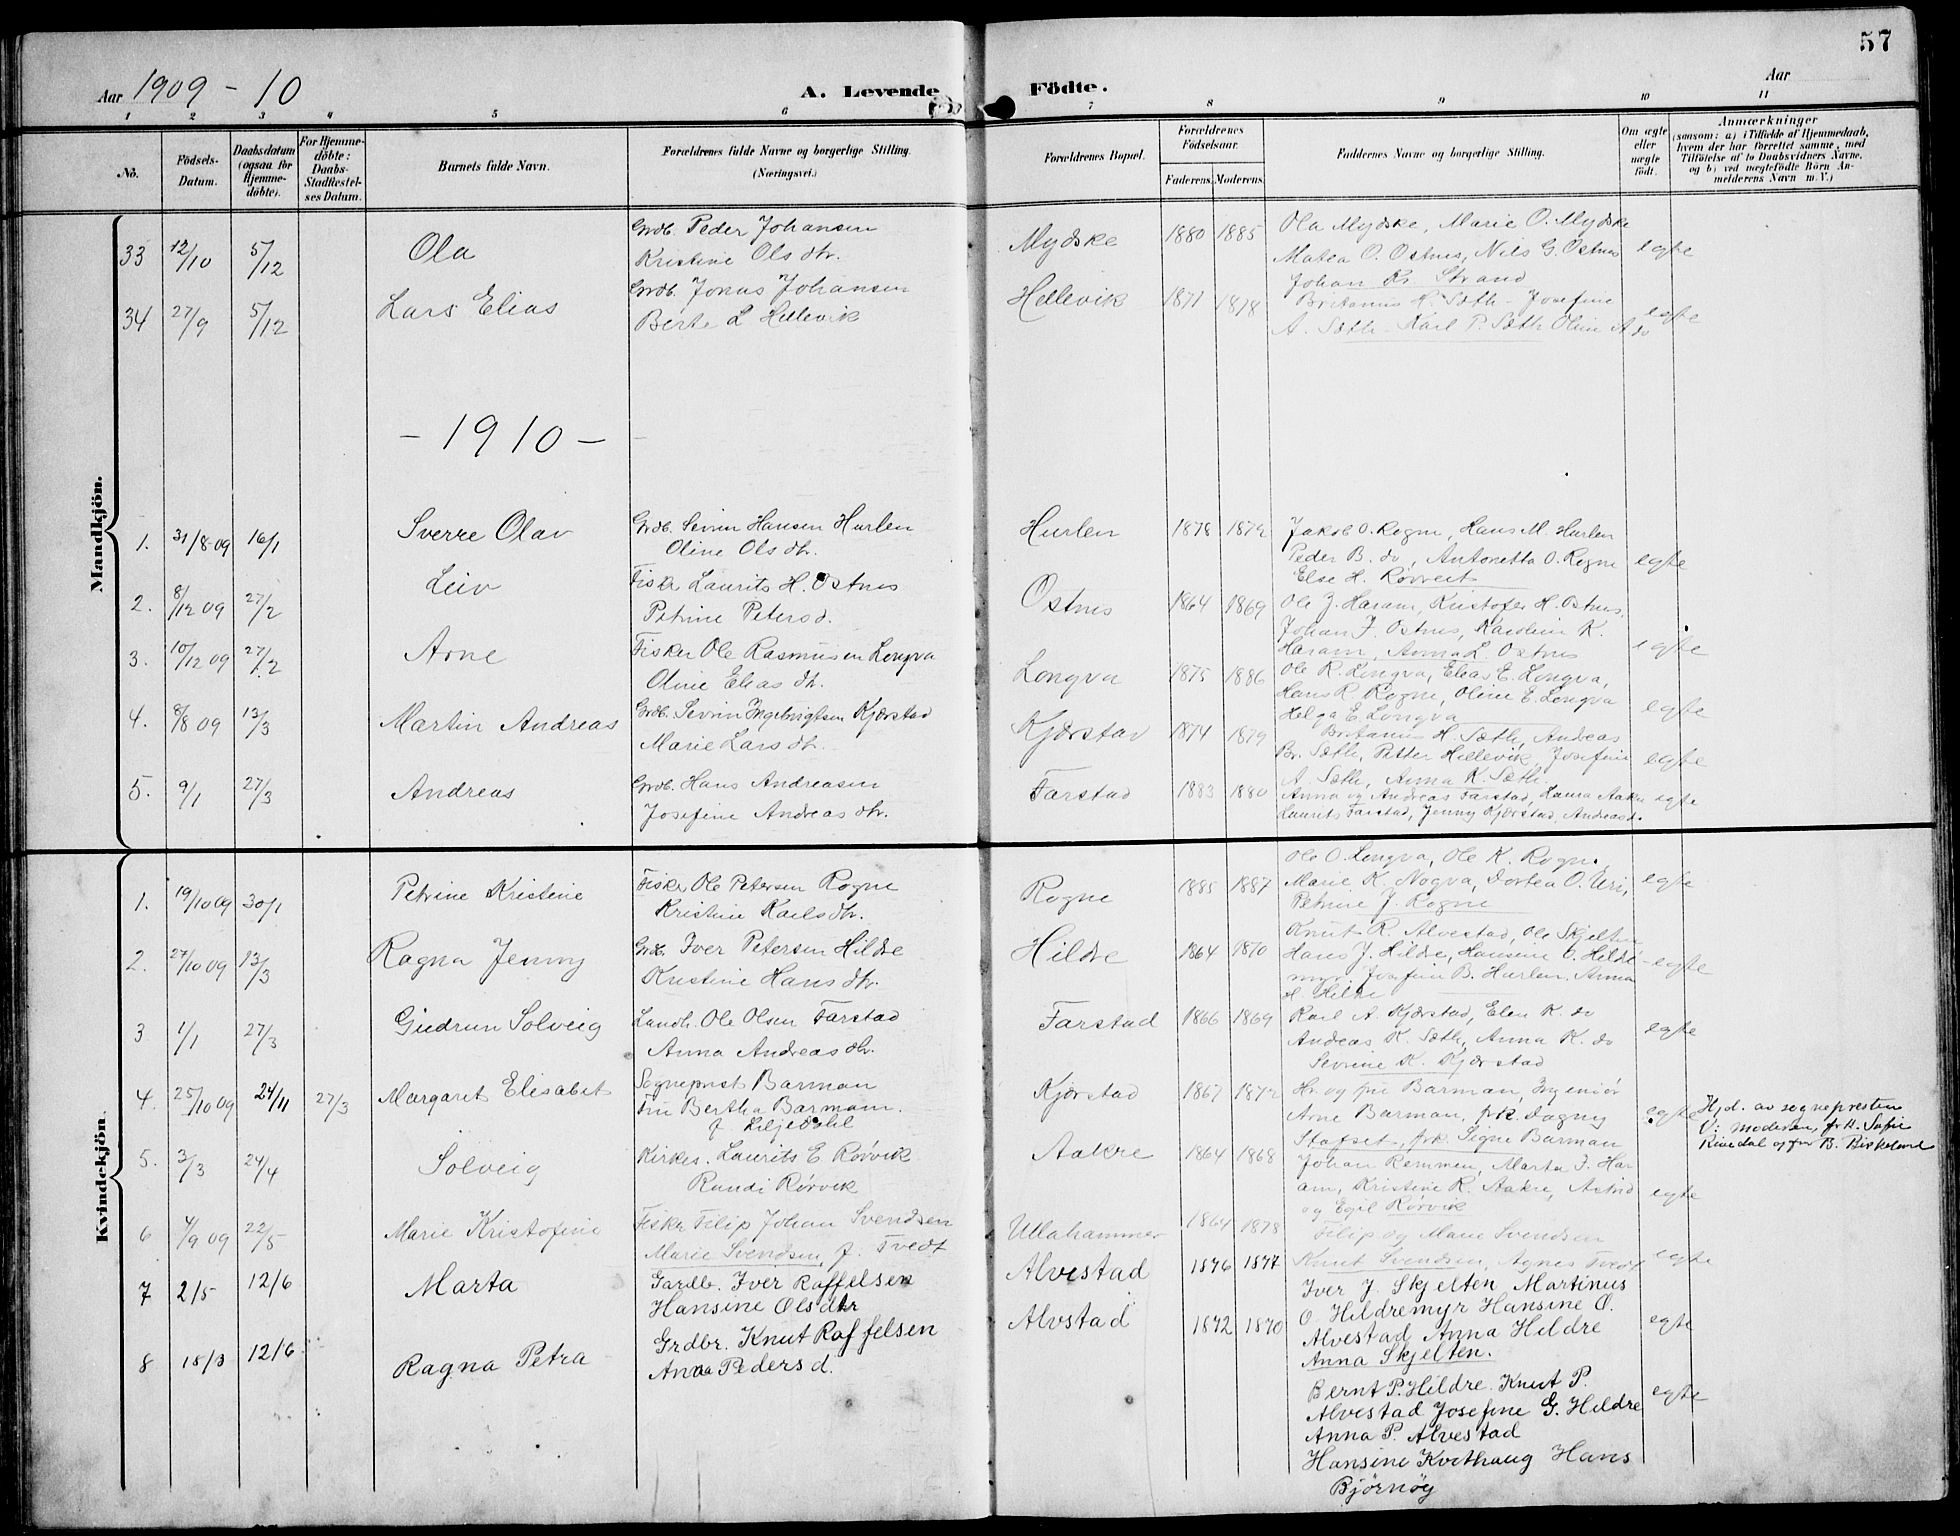 57
Aar 1909 - 10
A. Levende Födte.
Aar
1 2 3 4 5 6 7 8 9 10 11
No.
Födsels-Datum.
Daabsdatum (ogsaa for Hjemme-döbte).
For Hjemme-döbte: Daabs-Stadfæstel-ses Datum.
Barnets fulde Navn.
Forældrenes fulde Navne og borgerlige Stilling. (Næringsvei.)
Forældrenes Bopæl.
Forældrenes Födselsaar.
Faderens. Moderens.
Faddernes Navne og borgerlige Stilling.
Om ægte eller uægte födt.
Anmærkninger
(saasom: a) i Tilfælde af Hjemmedaab, hvem der har forrettet samme, med Tilföielse af to Daabsvidners Navne, og b) ved uægtefödte Börn An-melderens Navn m. V.)
Mandkjön.
33 12/10 5/12 Ola
Grdb. Peder Johansen
Kristine Olsdtr.
Mydske 1880 1885
Ola Mydske, Marie O. Mydske
Matea O. Ostnes, Nils G. Ostnes
Johan Kr. Strand
egte
34 27/9 5/12 Lars Elias
Grdb. Jonas Johansen
Berte L Hellevik
Hellevik 1871 1878
Britanus H. Sæth - Josefine
A. Sæth - Karl P. Sæth Oline A do
egte
- 1910 -
1. 31/8 09 16/1 Sverre Olav
Grdb. Sevrin Hansen Hurlen
Oline Olsdtr.
Hurlen 1878 1872
Jakob O. Rogne, Hans M. Hurlen
Peder B. do, Antonetta O. Rogne
Else H. Røvreit
egte
2. 8/12 09 27/2 Leiv
Fisker Laurits H. Ostnes
Petrine Petersd.
Ostnes 1864 1869
Ole J. Haram, Kristofer H. Ostnes,
Johan J. Ostnes, Karoline K.
Haram, Anna L. Ostnes
egte
3. 10/12 09 27/2 Arne
Fisker Ole Rasmussen Longva
Oline Eliasdtr.
Longva 1875 1886
Ole R. Longva, Elias E. Longva,
Hans R. Rogne, Oline E. Longva
Helga E. Longva
egte
4. 8/8 09 13/3 Martin Andreas
Grdb. Sevrin Ingebrigtsen Kjærstad
Marie Larsdtr.
Kjærstad 1874 1879
Britanus H. Sæth, Andreas
Br. Sæth, Petter Hellevik, Josefine
A. Sæth, Anna K. Sæth.
egte
5. 9/1 27/3 Andreas
Grdb. Hans Andreasen
Josefine Andreasdtr.
Farstad 1883 1880
Anna og Andreas Farstad, Laura Aakre
Laurits Farstad, Jenny Kjærstad, Andreasd.
egte
Kvindekjön
1. 19/10 09 30/1 Petrine Kristine
Fisker Ole Petersen Rogne
Kristine Karlsdtr.
Rogne 1885 1887
Ole O. Longva, Ole K. Rogne,
Marie K. Nogva, Dortea O. Uri,
Petrine J. Rogne
egte
2. 27/10 09 13/3 Ragna Jenny
Grdb. Iver Petersen Hildre
Kristine Hansdtr.
Hildre 1864 1870
Knut R. Alvestad, Ole Skjelten
Hans J. Hildre, Hansine O. Hildre-
myr, Josefine B. Hurlen, Anna
H. Hildre
egte
3 1/1 27/3 Gudrun Solveig
Landh. Ole Olsen Farstad
Anna Andreasdtr.
Farstad 1866 1869
Karl A. Kjærstad, Elen K. do
Andeas K. Sæth, Anna K. do
Sevrine K. Kjærstad
egte
4. 25/10 09 24/11 27/3 Margaret Elisabet
Sogneprest Barman
Fru Bertha Barmann.
f. Liljedahl
Kjærstad 1867 1872
Hr. og fru Barman, Ingeniör
Arne Barman, frk Dagny
Stafset, frk. Signe Barman
egte
Hjd. av sognepresten
V: moderen, fr H. Sofie
Rivedal og fru B. Birkeland
5. 3/3 24/4 Solveig
Kirkes. Laurits E. Rørvik
Randi Rørvik
Aakre 1864 1868
Johan Remmen, Marta J. Har-
am, Kristine R. Aakre, Astrid
og Egil Rørvik
egte
6 4/9 09 22/5 Marie Kristofine
Fisker Filip Johan Svendsen
Marie Svendsen, f. Tvedt
Ullahammer 1864 1878
Filip og Marie Svendsen
Knut Svendsen, Agnes Tvedt
egte
7 2/5 12/6 Marta
Gardb. Iver Raffelsen
Hansine Olsdtr
Alvestad 1876 1877
Iver J. Skjelten Martinus
O. Hildremyr Hansine O.
Alvestad Anna Hildre
Anna Skjelten.
egte
8 15/3 12/6 Ragna Petra
Grdbr. Knut Raffelsen
Anna Pedersd.
Alvstad 1872 1870
Bernt P. Hildre. Knut P.
Alvestad Josefine G. Hildre
Anna P. Alvestad
Hansine Kvithaug Hans
Björnöy
egte